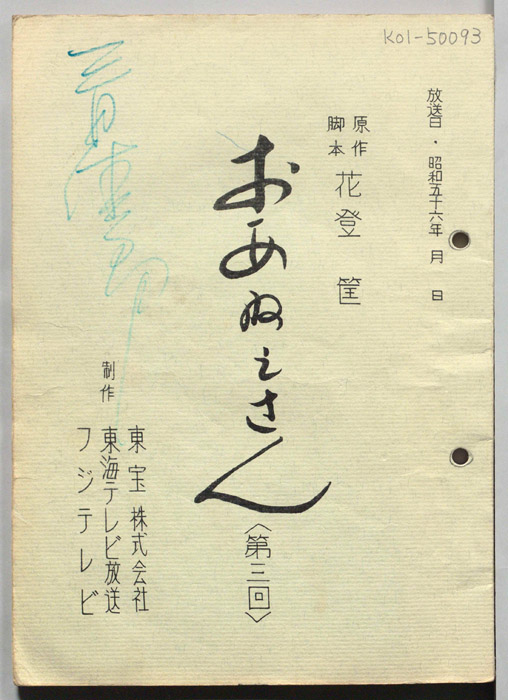 KO1-50093
放送日・昭和五十六年 月 日
原作
脚本
花登 筐
おあねえさん
〈第三回〉
制作
東宝株式会社
東海テレビ放送
フジテレビ